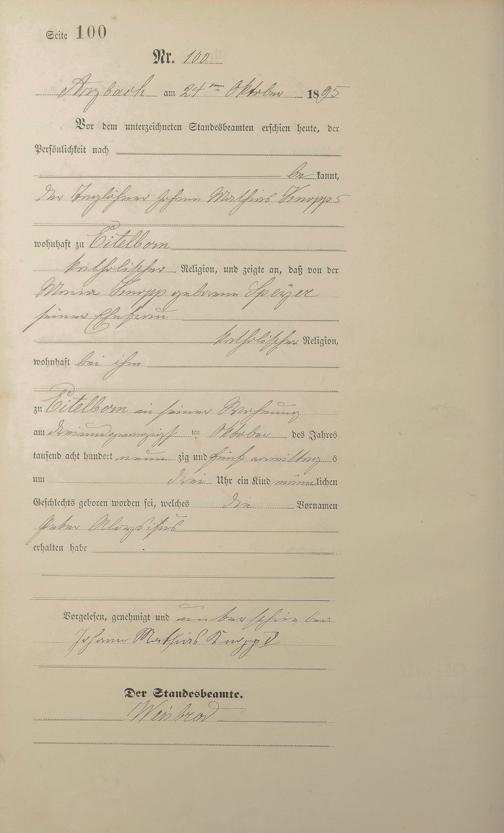 Seite 100
Nr. 100
Arzbach am 24ten Oktober 1895
Vor dem unterzeichneten Standesbeamten erschien heute, der
Persönlichkeit nach
be kannt,
der Taglöhner Johann Mathias Knopp
wohnhaft zu Eitelborn
katholischer Religion, und zeigte an, daß von der
Maria Knopp geborene Speyer
seiner Ehefrau
katholischer Religion,
wohnhaft bei ihm
zu Eitelborn in seiner Wohnung
am dreiundzwanzigsten Oktober des Jahres
tausend acht hundert neun zig und fünf vormittag s
um drei Uhr ein Kind männlichen
Geschlechts geboren worden sei, welches die Vornamen
Peter Aloysius
erhalten habe
Vorgelesen, genehmigt und unterschrieben
Johann Mathias Knopp
Der Standesbeamte.
Weinbrod